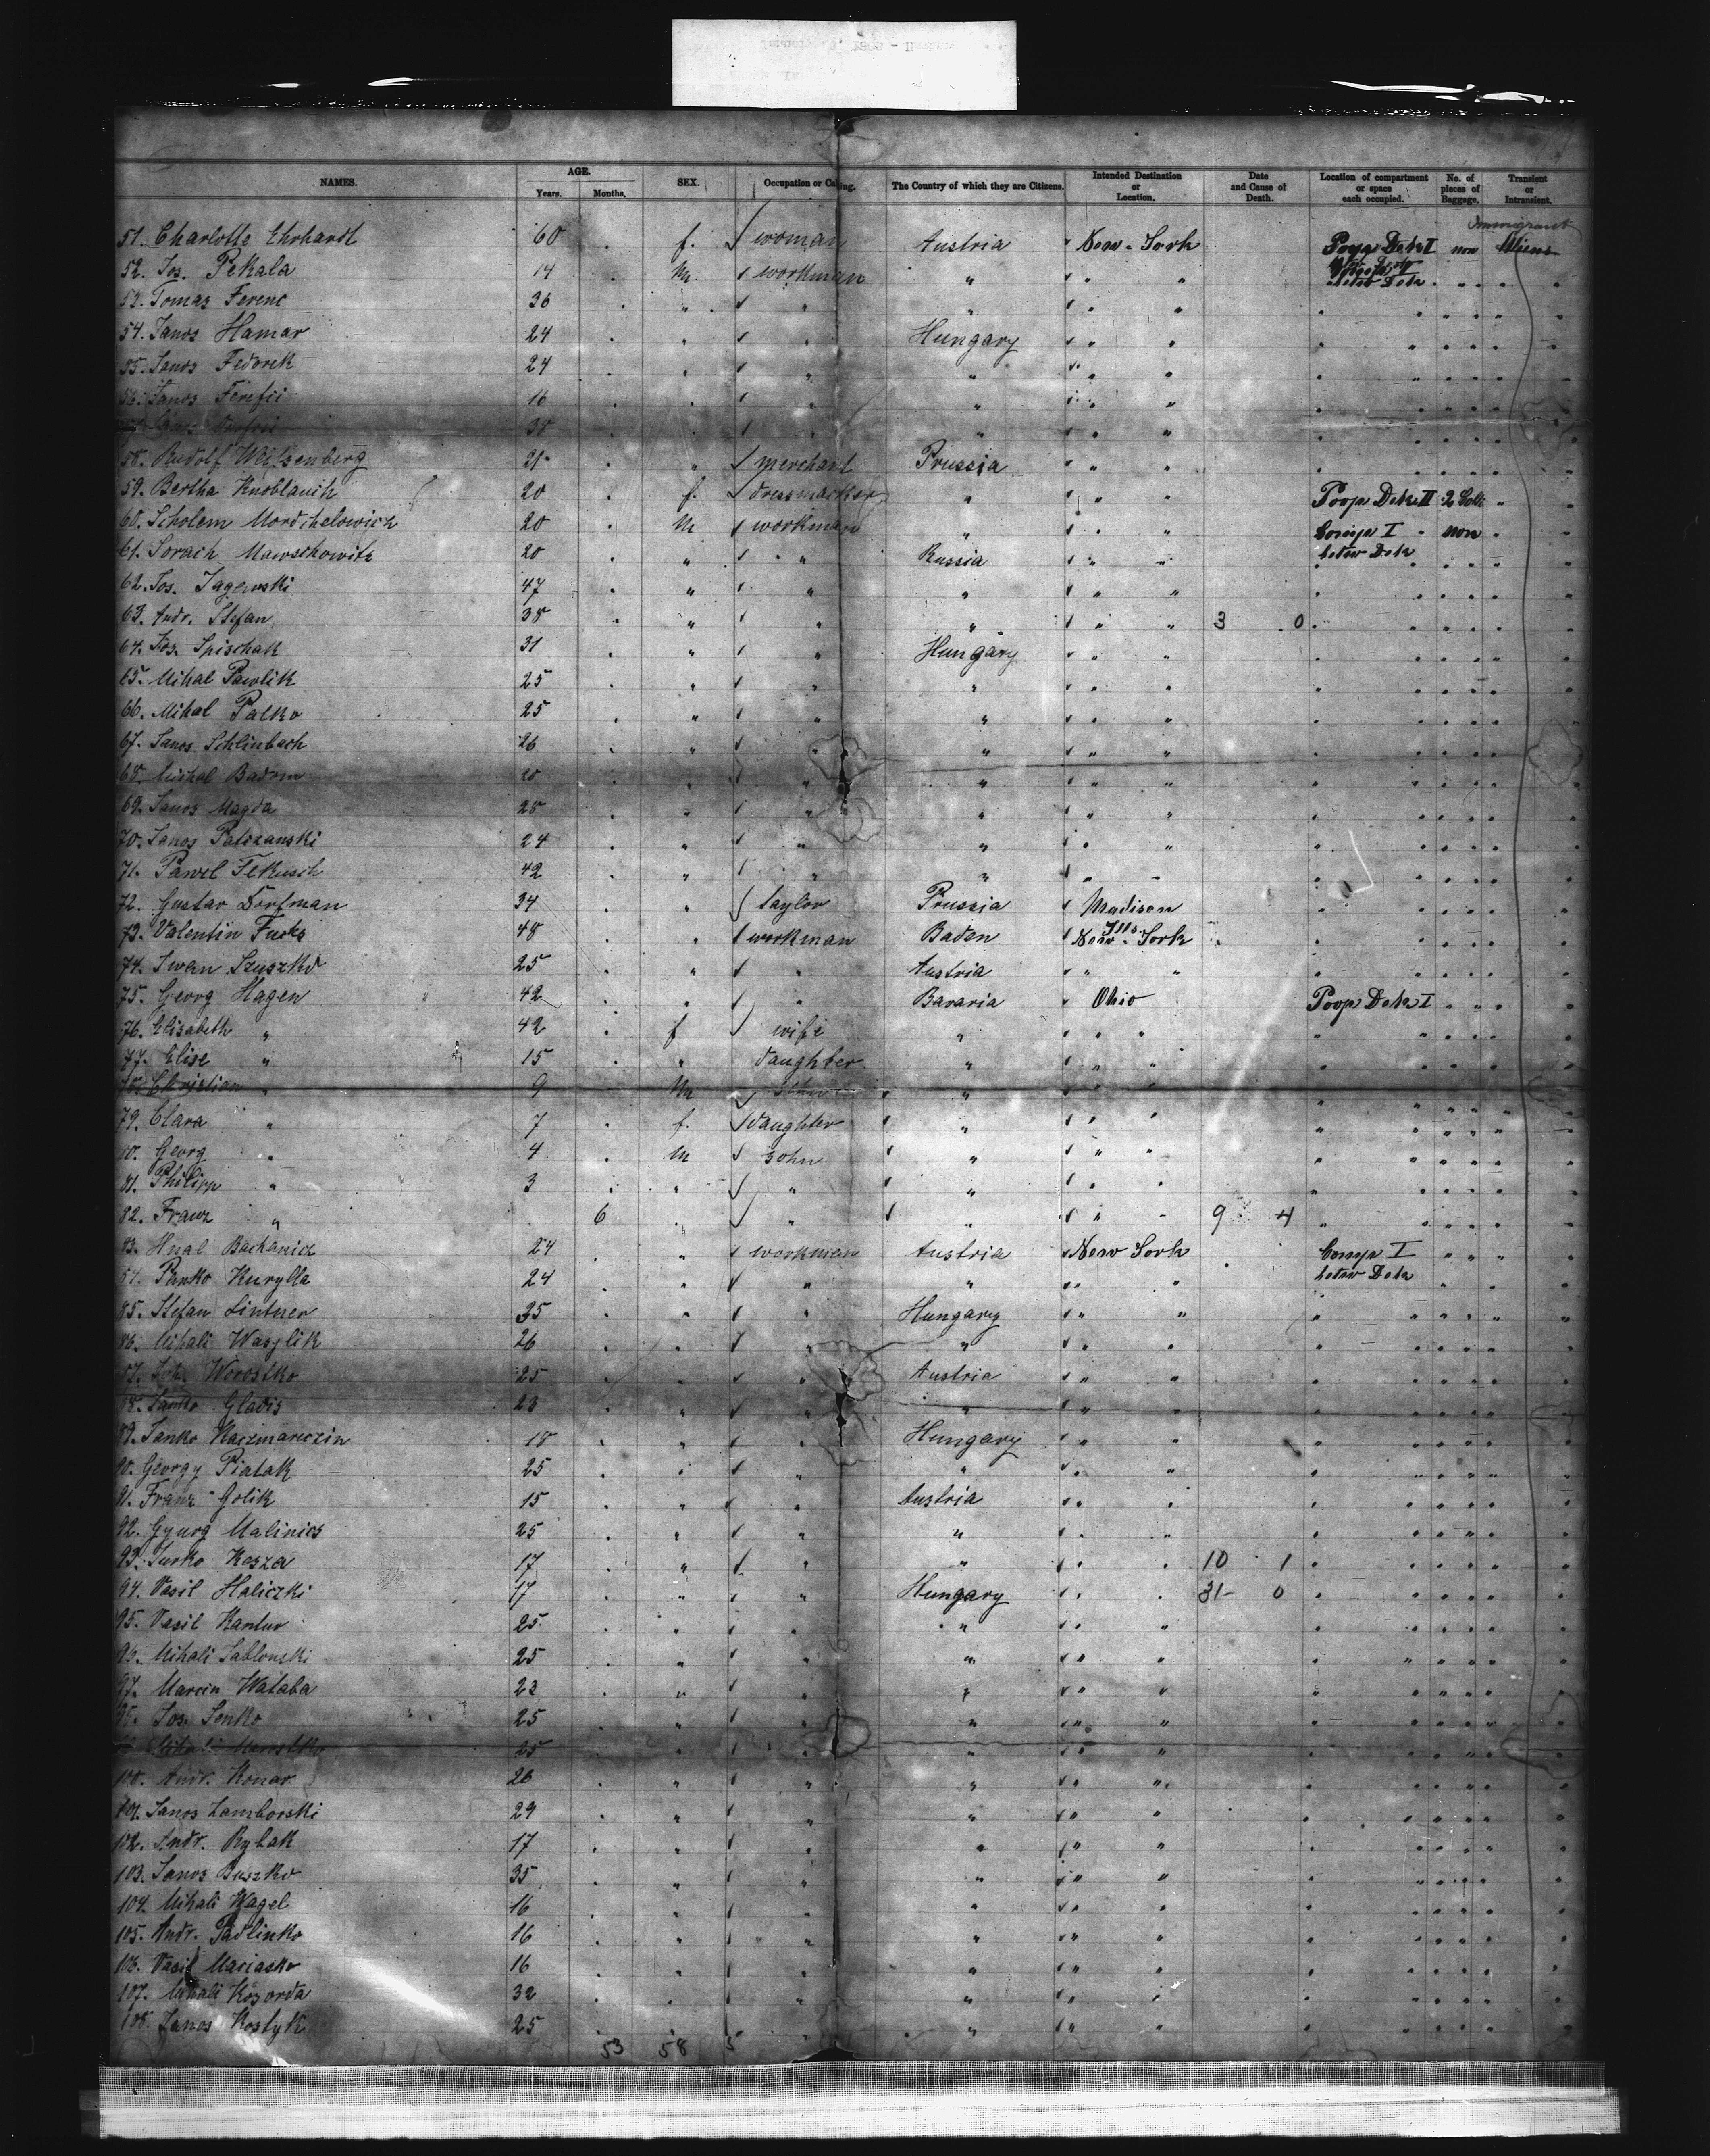 NAMES. AGE. Years. Months. SEX. Occupation or Calling. The Country of which they are Citizens. Intended Destination or Location. Date and Cause of Death. Location of compartment or space each occupied. No. of pieces of Baggage. Transient or Intransient.
Immigrant
51. Charlotte Ehrhardt 60 f. woman Austria New-York Poop Deck II non Aliens
52. Jos. Pekala 14 M. workman " " "
betw Deck
53. Tomas Ferenc 36 " " " " "
54. Janos Hamar 24 " " Hungary " "
55. Janos Fedorek 24 " " " " "
56. Janos 16 " " " " "
38 " " " " "
58. Rudolf Weilsenberg 21 " merchant Prussia " "
59. Bertha Knoblauch 20 f. dressmacker " " " Poop Deck II 2 Colli "
60. Scholem Mordchelowich 20 M workman " " " Comp I non "
61. Sorach Mawschowitz 20 " " Russia " " betw Deck
62. Jos. Jagewski 47 " " " " "
63. Andr. Stefan 38 " " " " " 3 0
64. Jos. Spischak 31 " " Hungary " "
65. Mihal Pawlik 25 " " " " "
66. Mihal Palko 25 " " " " "
67. Janos Schlinbach 26 " " " " "
68. Michal Badom " " " " "
69. Janos Magda 28 " " " " "
70. Janos Patszanski 24 " " " " "
71. Pawel Fekusch 42 " " " " "
72. Gustav Dorfman 34 " taylor Prussia Madison
Ills.
73. Valentin Fuchs 48 " workman Baden New-York
74. Iwan Szuszko 25 " " Austria " "
75. Georg Hagen 42 " " Bavaria Ohio Poop Deck I
76. Elisabeth " 42 f wife " " "
77. Elise " 15 " daughter " " "
78. Christian " 9 M sohn " " "
79. Clara " 7 f. daughter " " "
80. Georg " 4 M sohn " " "
81. Philipp " 3 " " " " "
82. Franz " 6 " " " " " 9 4
83. Hnal Bachanicz 24 " workman Austria New York Comp I
84. Panko Kurylla 24 " " " " " betw Deck
85. Stefan Lintner 35 " " Hungary " "
86. Mihali Waszlik 26 " " " " "
87. Joh. Worostko 25 " " Austria " "
88. Janko Gladis 23 " " " " "
89. Janko Kaczmarczin 18 " " Hungary " "
90. Georgy Piatak 25 " " " " "
91. Franz Golik 15 " " Austria " "
92. Gyurg Malinics 25 " " " " "
93. Jurko Kesza 17 " " " " " 10 1
94. Vasil Haliczki 17 " " Hungary " " 31- 0
95. Vasil Kantur 25 " " " " "
96. Mihali Jablonski 25 " " " " "
97. Marcin Wataba 23 " " " " "
98. Jos. Senko 25 " " " " "
Mihali 25 " " " " "
100. Andr. Konar 26 " " " " "
101. Janos Zamborski 29 " " " " "
102. Andr. Rybak 17 " " " " "
103. Janos Buszko 35 " " " " "
104. Mihali Wagel 16 " " " " "
105. Andr. Padlinko 16 " " " " "
106. Vasil Maciasko 16 " " " " "
107. Mihali Kozorda 32 " " " " "
108. Janos Kostyk 25 " " " " "
53 58 5